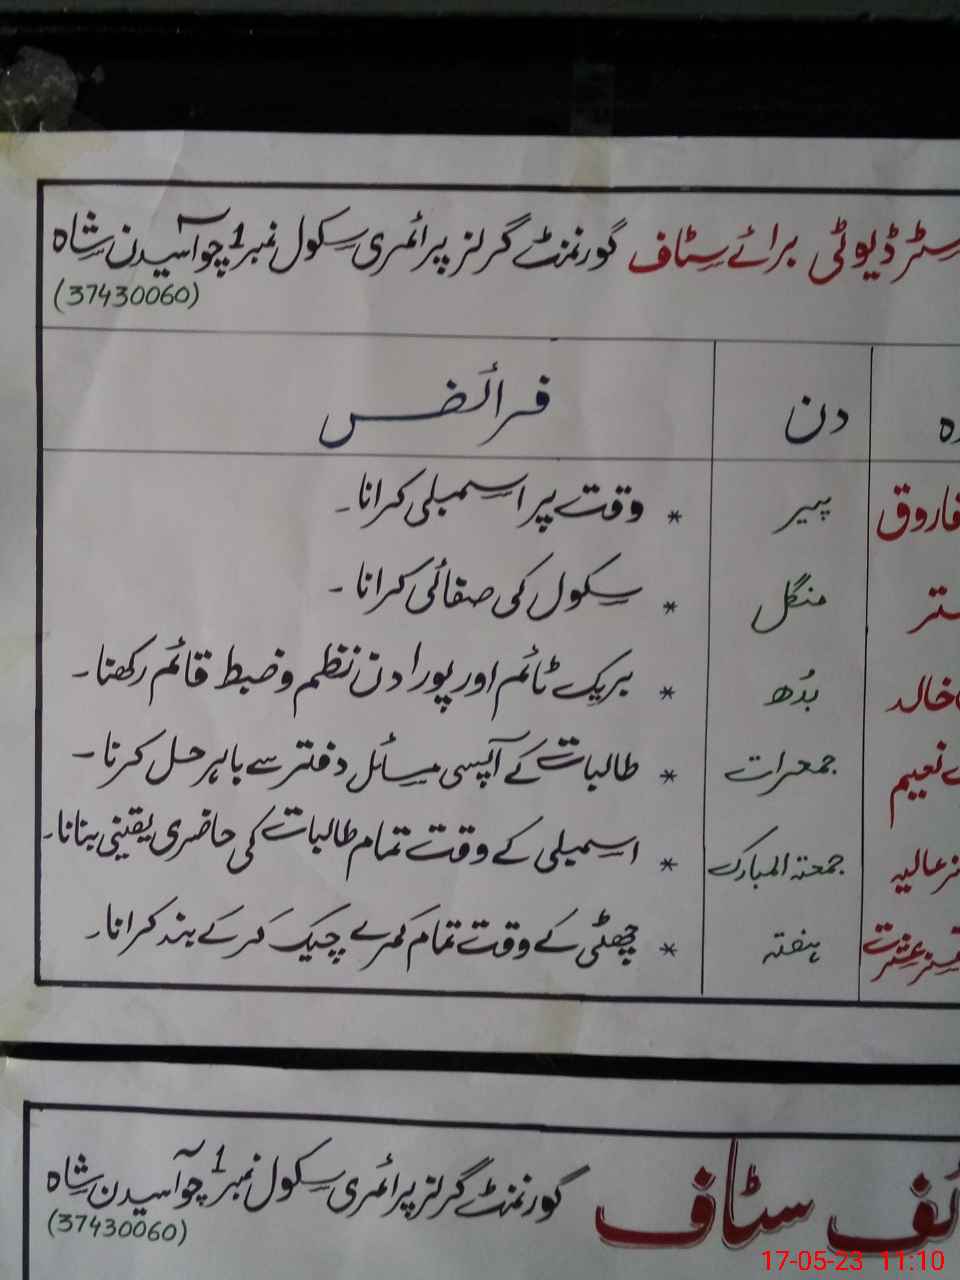 ڈیوٹی برائے سٹاف گورنمنٹ گرلز پرائمری سکول نمبر 1 چوآسیدن شاہ
(37430060)
دن فرائض
فاروق پیر * وقت پر اسمبلی کرانا۔
منگل * سکول کی صفائی کرانا۔
خالد بُدھ * بریک ٹائم اور پورا دن نظم و ضبط قائم رکھنا۔
نعیم جمعرات * طالبات کے آپسی مسائل دفتر سے باہر حل کرنا۔
عالیہ جمعتہ المبارک * اسمبلی کے وقت تمام طالبات کی حاضری یقینی بنانا۔
عشرت ہفتہ * چھٹی کے وقت تمام کمرے چیک کر کے بند کرانا۔
سٹاف گورنمنٹ گرلز پرائمری سکول نمبر 1 چوآسیدن شاہ
(37430060)
17-05-23 11:10